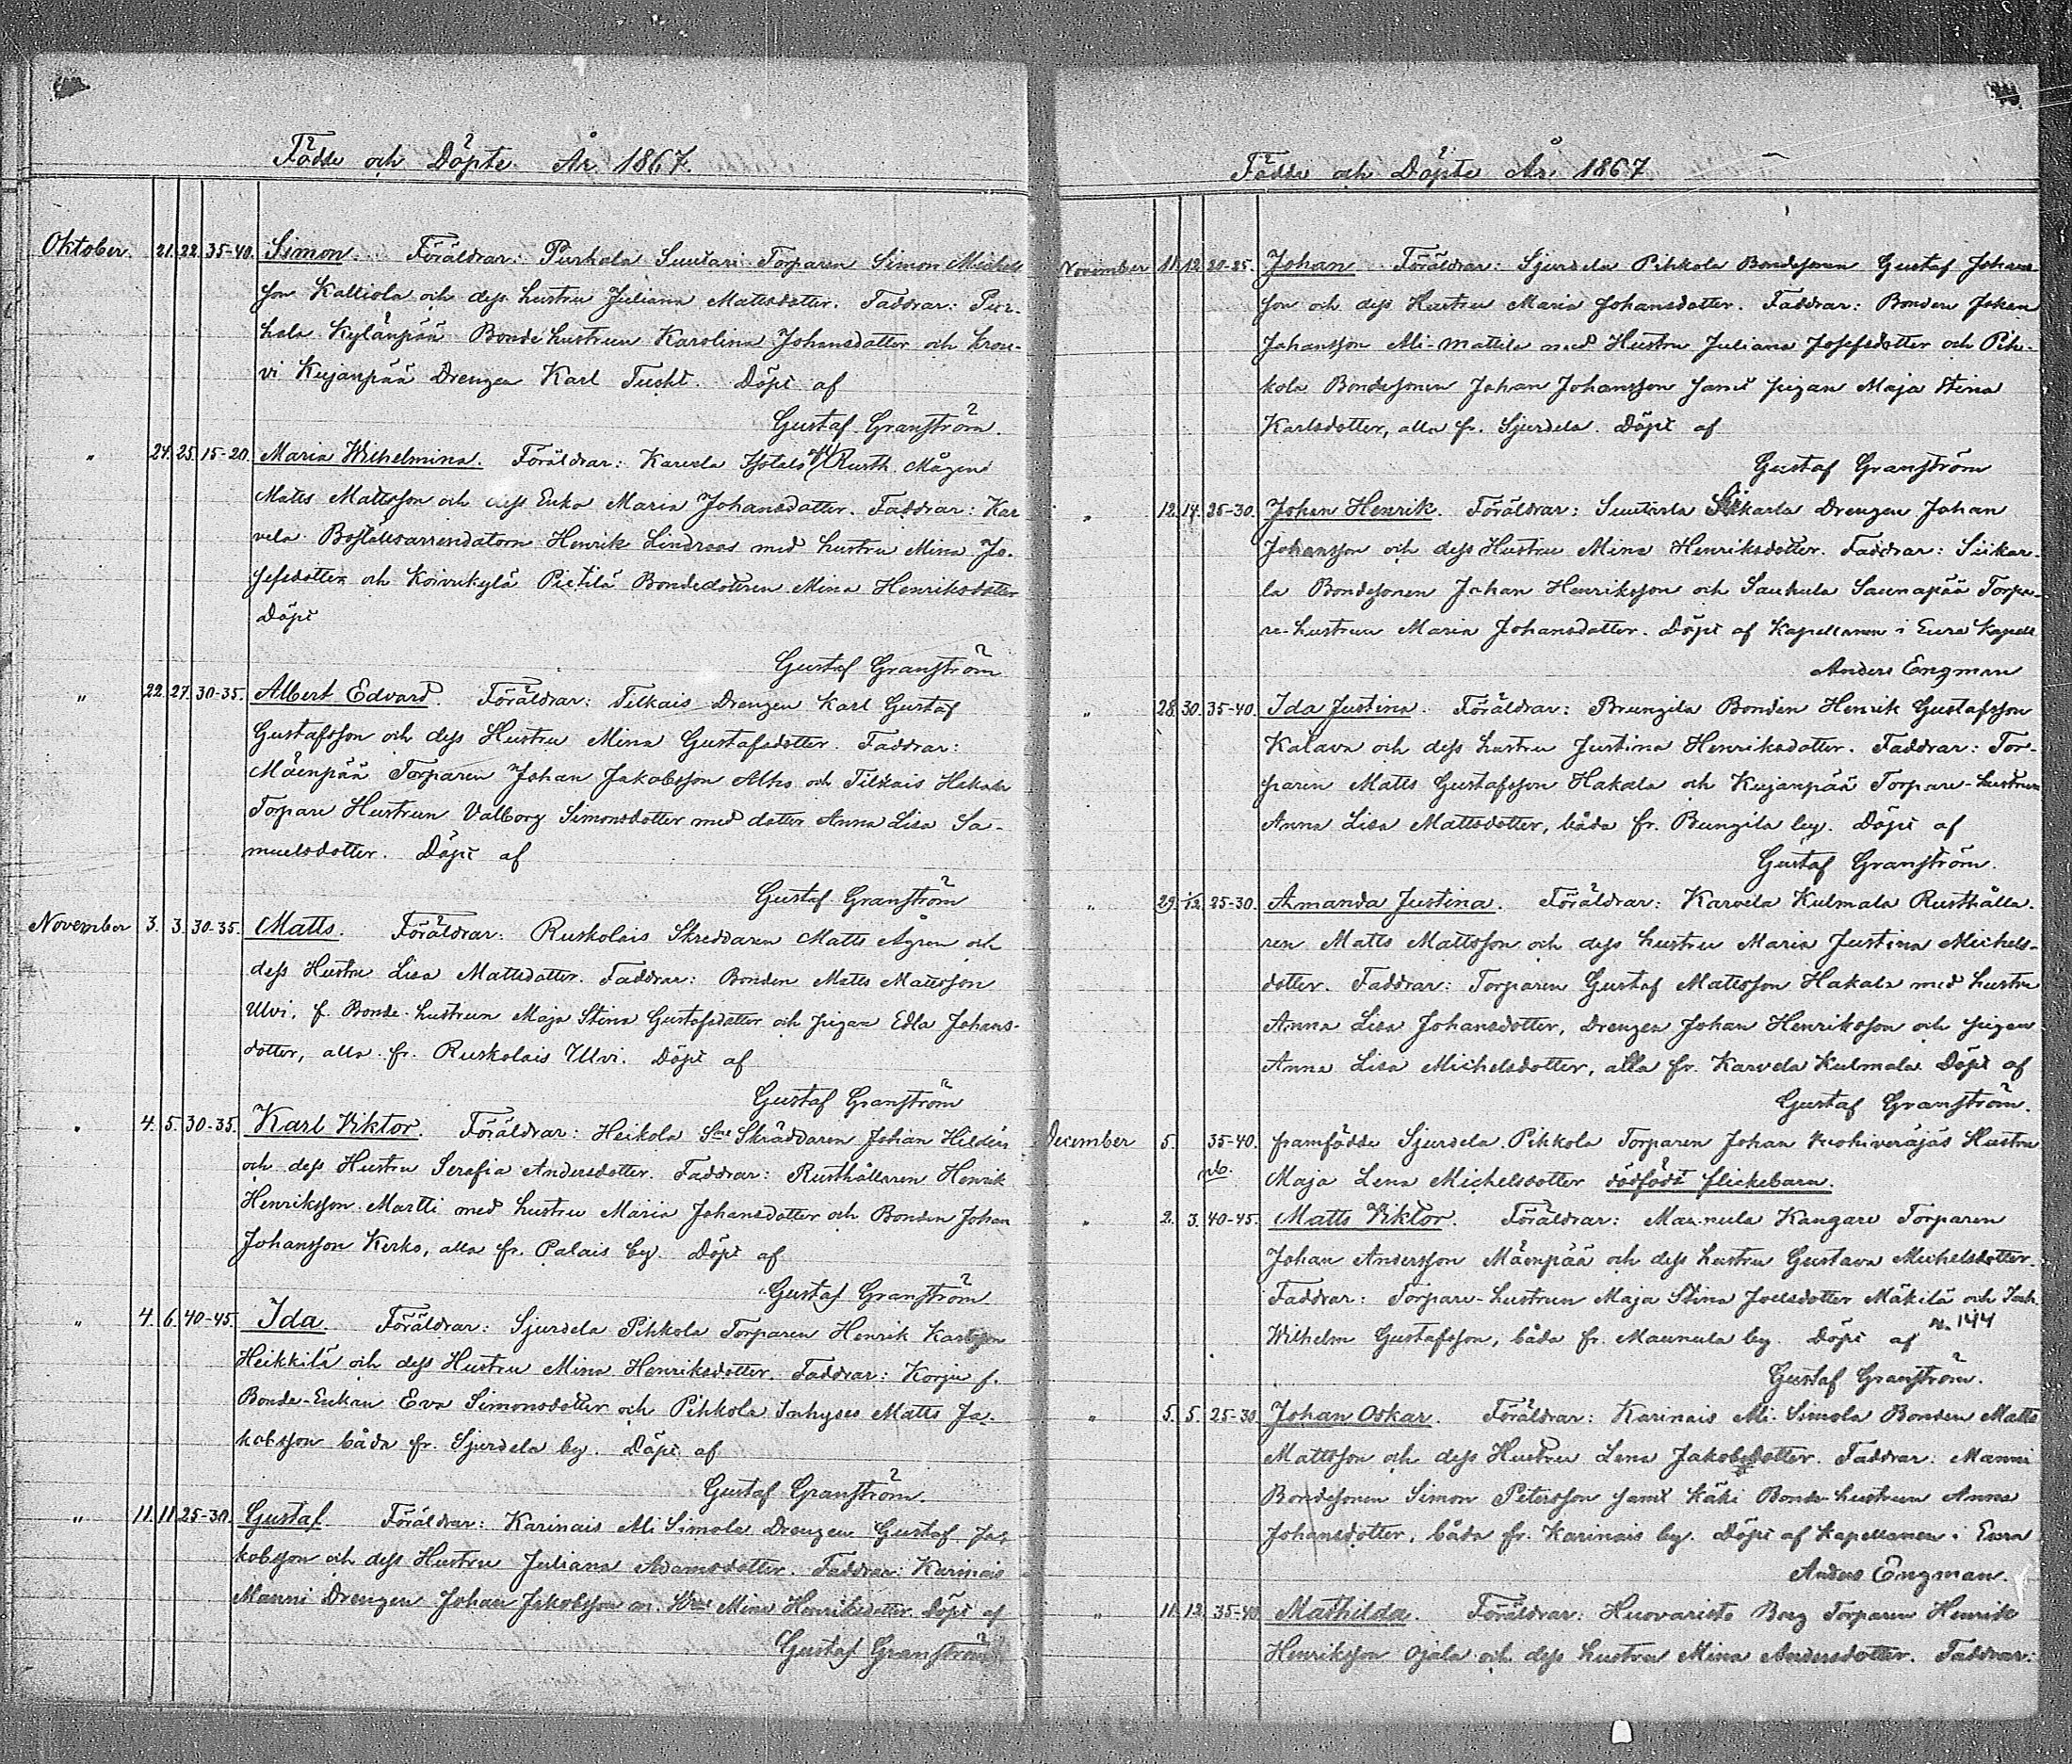 Födde och Döpte År 1867.
Oktober. 21. 22. 35-40. Simon. Föräldrar: Purhala Suutari Torparen Simon Michels
son Kalliola och dess hustru Juliana Mattsdotter. Faddrar: Pur-
hala Kylänpää Bonde hustrun Karolina Johansdotter och Krou-
vi Kujanpää Drengen Karl Tusht. Döpt af
Gustaf Granström.
" 24. 25. 15-20. Maria Wilhelmina. Föräldrar: Karvela Rusth. Mågen
Matts Mattsson och dess Enka Maria Johansdotter. Faddrar: Kar
vela Boställsarrendatorn Henrik Lindroos med hustru Mina Jo-
sefsdotter och Koivukylä Pietilä Bondedottren Mina Henriksdotter
Döpt
Gustaf Granström
" 22. 27. 30-35. Albert Edvard. Föräldrar: Tilkais Drengen Karl Gustaf
Gustafsson och dess Hustru Mina Gustafsdotter. Faddrar:
Mäenpää Torparen Johan Jakobsson Alho och Tilkais Hakala
Torpare Hustrun Valborg Simonsdotter med dotter Anna Lisa Sa-
muelsdotter. Döpt af
Gustaf Granström
November 3. 3. 30-35. Matts. Föräldrar: Ruskolais Skreddaren Matts Ågren och
dess Hustru Lisa Mattsdotter. Faddrar: Bonden Matts Mattsson
Ulvi, f. Bonde-hustrun Maja Stina Gustafsdotter och pigan Edla Johans-
dotter, alla fr. Ruskolais Ulvi. Döpt af
Gustaf Granström
" 4. 5. 30-35. Karl Viktor. Föräldrar: Heikola Skräddaren Johan Hildén
och dess Hustru Serafia Andersdotter. Faddrar: Rusthållaren Henrik
Henriksson Martti med hustru Maria Johansdotter och Bonden Johan
Johansson Kerko, alla fr. Palais by. Döpt af
Gustaf Granström
" 4. 6. 40-45. Ida. Föräldrar: Sjurdela Pihkola Torparen Henrik Karlsson
Heikkilä och dess Hustru Mina Henriksdotter. Faddrar: Korju f.
Bonde-Enkan Eva Simonsdotter och Pihkola Inhyses Matts Ja-
kobsson båda fr. Sjurdela by. Döpt af
Gustaf Granström.
" 11. 11. 25-30. Gustaf. Föräldrar: Karinais Ali Simola Drengen Gustaf Ja-
kobsson och dess Hustru Juliana Adamsdotter. Faddrar: Karinais
Manni Drengen Johan Jakobsson Mina Henriksdotter Döpt af
Gustaf Granström
Födde och Döpte År 1867
November 11. 12. 20-25. Johan Föräldrar: Sjurdela Pihkola Bondesonen Gustaf Johans-
son och dess Hustru Maria Johansdotter. Faddrar: Bonden Johan
Johansson Ali-Mattila med Hustru Juliana Josefsdotter och Pih-
kola Bondesonen Johan Johansson samt pigan Maja Stina
Karlsdotter, alla fr. Sjurdela. Döpt af
Gustaf Granström
" 12. 14. 25-30. Johan Henrik. Föräldrar: Suutarla Siikarla Drengen Johan
Johansson och dess Hustru Mina Henriksdotter. Faddrar: Siikar-
la Bondesonen Johan Henriksson och Saukula Saunapää Torpa-
re-hustrun Maria Johansdotter. Döpt af Kapellanen i Eura Kapell
Anders Engman
" 28. 30. 35-40. Ida Justina. Föräldrar: Brungila Bonden Henrik Gustafsson
Kalava och dess hustru Justina Henriksdotter. Faddrar: Tor-
paren Matts Gustafsson Hakala och Kujanpää Torpare-hustrun
Anna Lisa Mattsdotter, båda fr. Bungila by. Döpt af
Gustaf Granström.
" 29. 25-30. Amanda Justina. Föräldrar: Karvela Kulmala Rusthålla-
ren Matts Mattsson och dess hustru Maria Justina Michels-
dotter. Faddrar: Torparen Gustaf Mattsson Hakala med hustru
Anna Lisa Johansdotter, Drengen Johan Henriksson och pigan
Anna Lisa Michelsdotter, alla fr. Karvela Kulmala Döpt af
Gustaf Granström.
December 5. 35-40. framfödde Sjurdela Pihkola Torparen Johan Hustru
Maja Lena Michelsdotter dödfödt flickebarn.
" 2. 3. 40-45. Matts Viktor. Föräldrar: Maunula Kangare Torparen
Johan Andersson Mäenpää och dess hustru Gustava Michelsdotter.
Faddrar: Torpare-hustrun Maja Stina Joelsdotter Mäkilä och
Wilhelm Gustafsson, båda fr. Maunula by. Döpt af n. 144
Gustaf Granström.
" 5. 5. 25-30 Johan Oskar. Föräldrar: Karinais Ali-Simola Bonden Matts
Mattsson och dess Hustru Lena Jakobsdotter. Faddrar: Manni
Bondesonen Simon Petersson samt Käki Bonde-hustrun Anna
Johansdotter, båda fr. Karinais by. Döpt af Kapellanen i Eura
Anders Engman.
" 11. 12. 35-40 Mathilda. Föräldrar: Huovaristo Borg Torparen Henrik
Henriksson Ojala och dess hustru Mina Andersdotter. Faddrar: